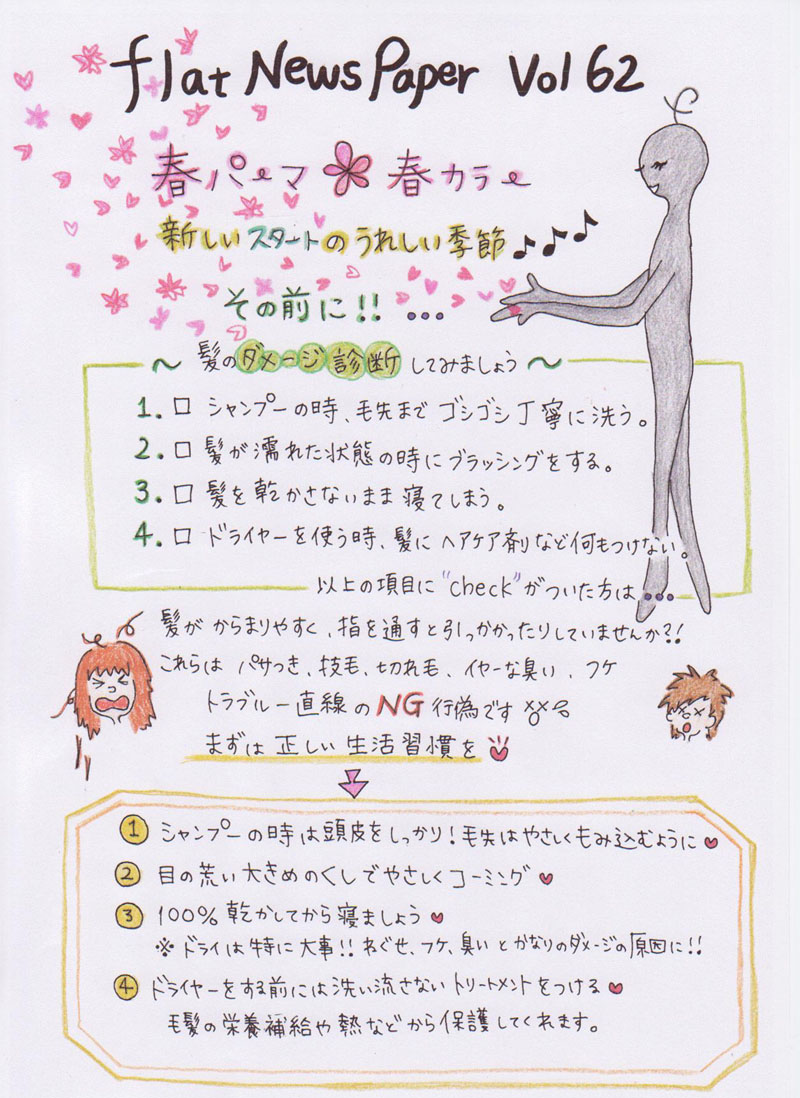 flat News Paper Vol 62
春パーマ 春カラー
新しいスタートのうれしい季節♪♪♪
その前に!! ...
～ 髪のダメージ診断してみましょう ～
1. □ シャンプーの時、毛先までゴシゴシ丁寧に洗う。
2. □ 髪が濡れた状態の時にブラッシングをする。
3. □ 髪を乾かさないまま寝てしまう。
4. □ ドライヤーを使う時、髪にヘアケア剤など何もつけない。
以上の項目に"check"がついた方は....
髪がからまりやすく、指を通すと引っかかったりしていませんか?!
これらは パサつき、技毛、切れ毛、イヤーな臭い、フケ
トラブル一直線のNG行為です
まずは正しい生活習慣を
① シャンプーの時は頭皮をしっかり!毛先はやさしくもみ込むように
② 目の荒い大きめのくしでやさしくコーミング
③ 100%乾かしてから寝ましょう
※ドライは特に大事!! ねぐせ、フケ、臭いとかなりのダメージの原因に!!
④ ドライヤーをする前には洗い流さないトリートメントをつける
毛髪の栄養補給や熱などから保護してくれます。